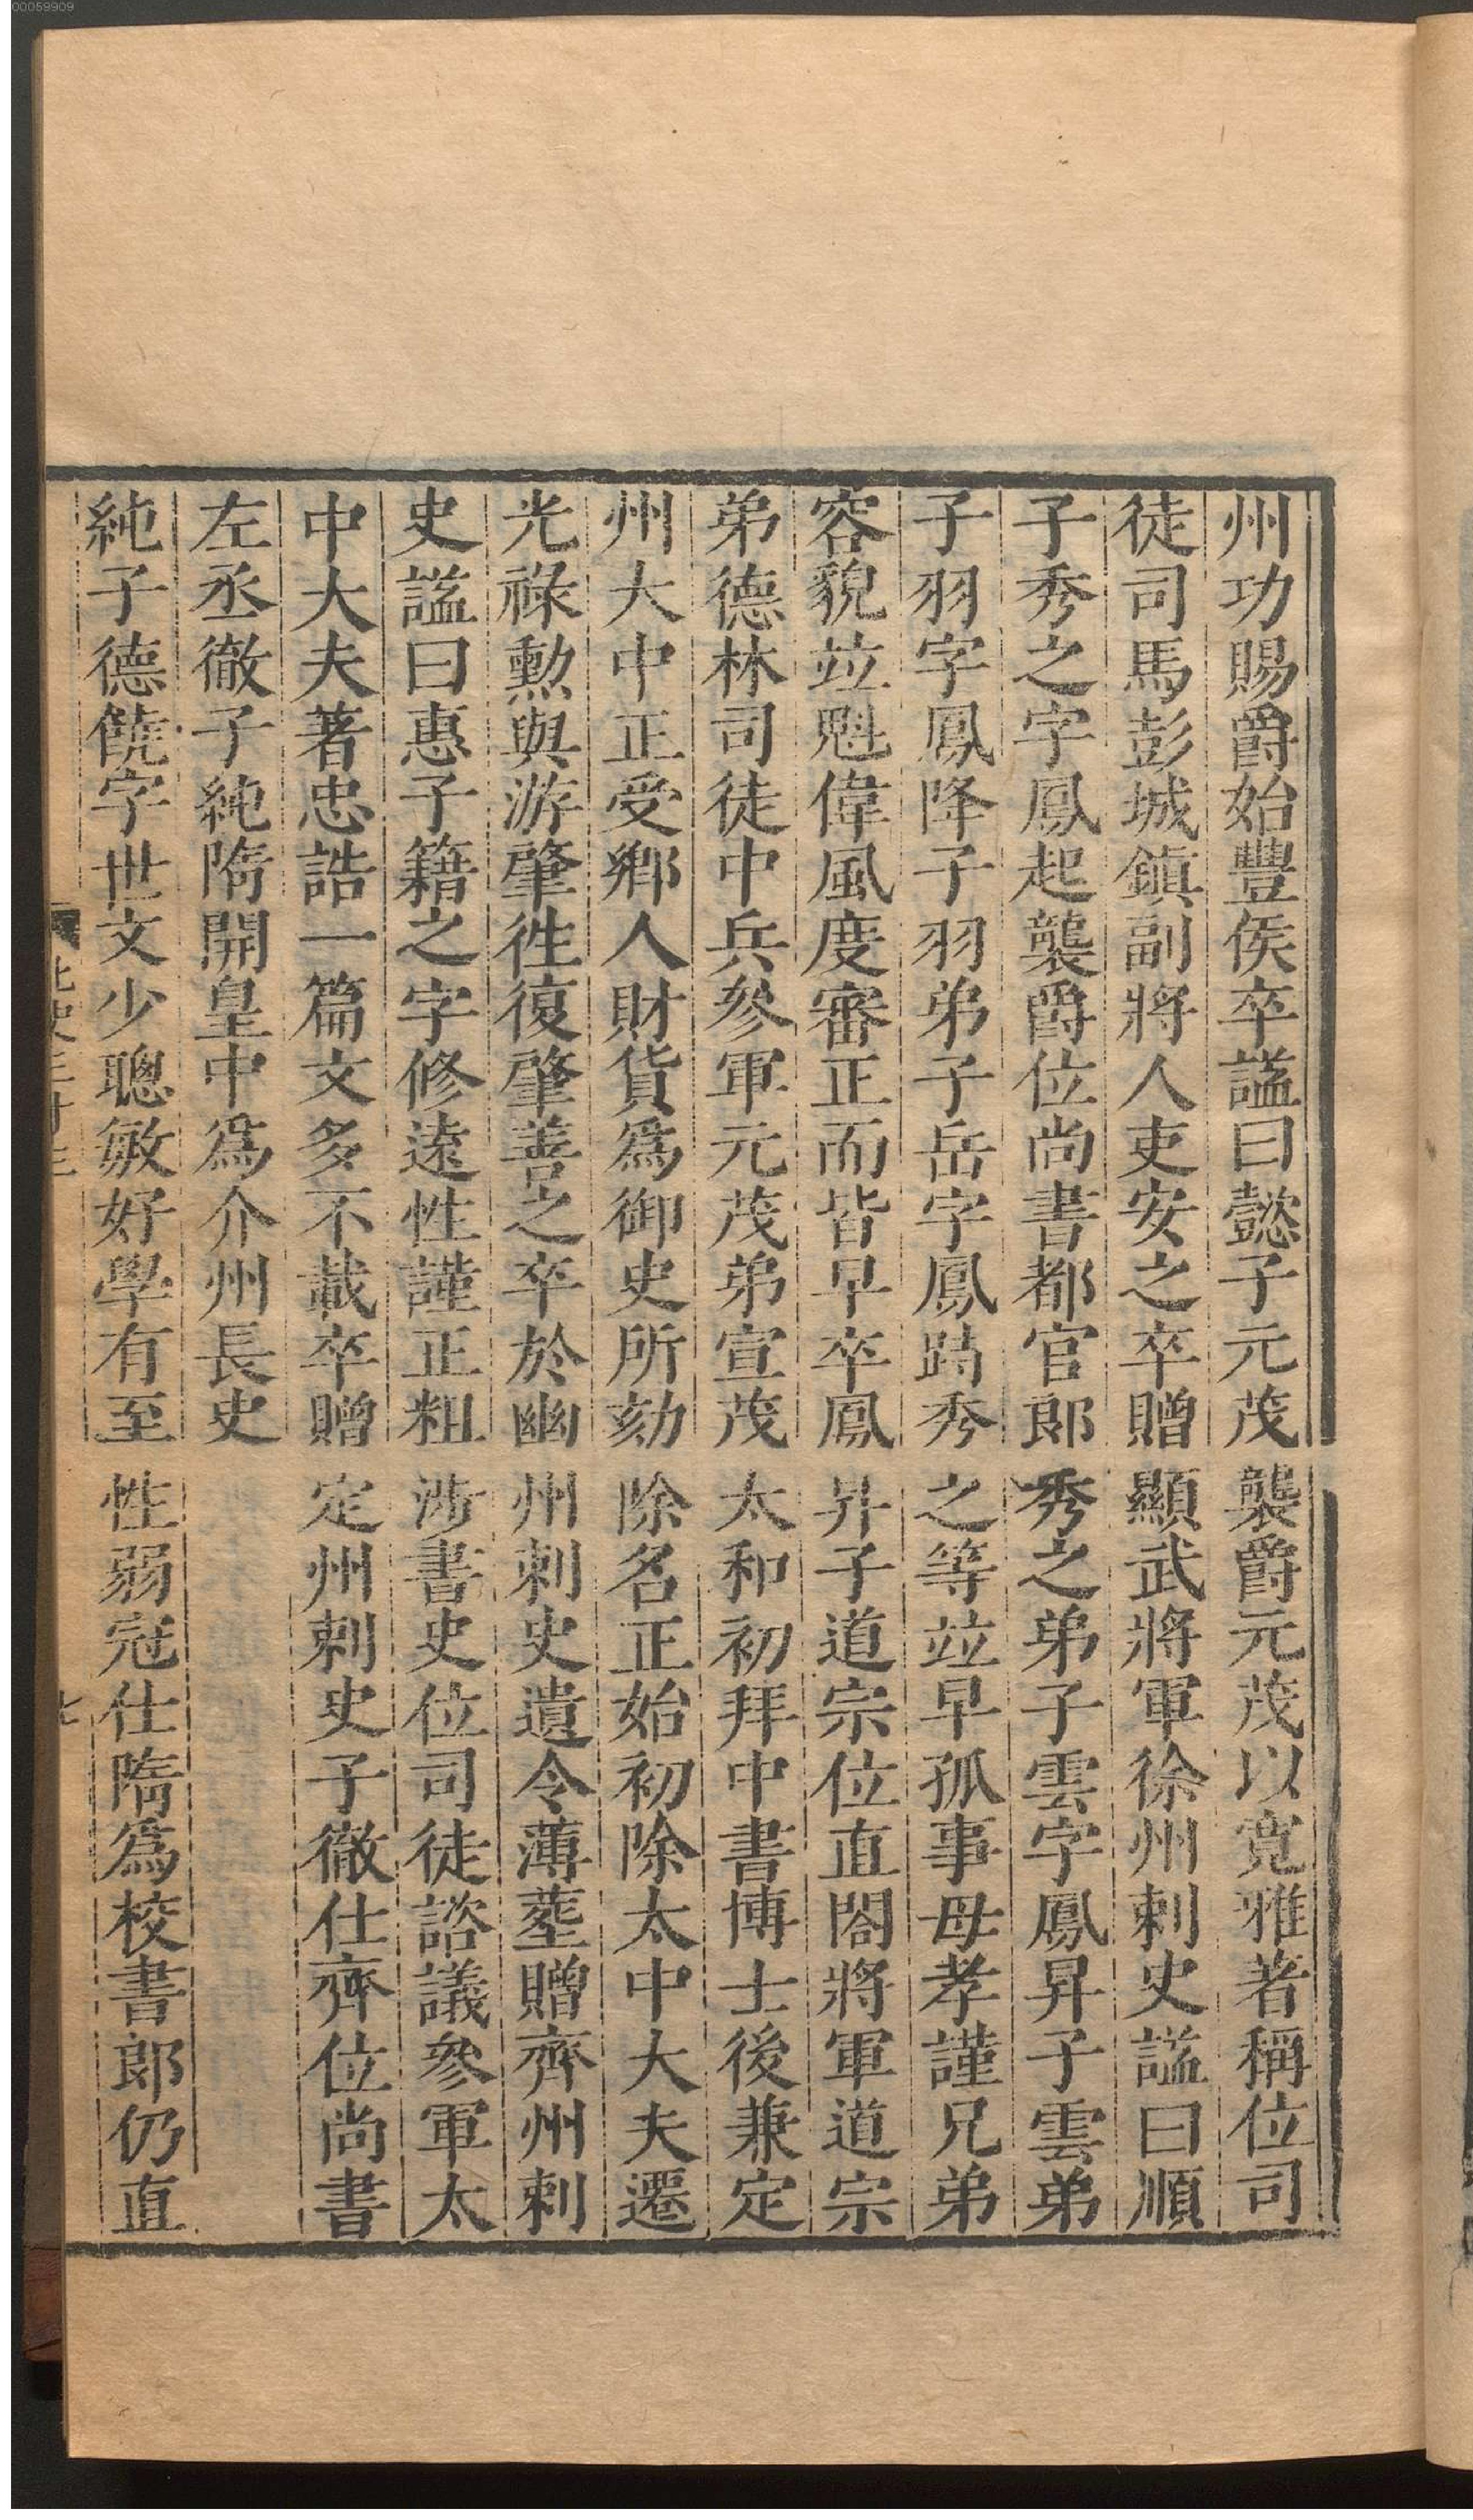 00059909
州功賜爵始豐侯卒謚曰懿子元茂襲爵元茂以寬雅著稱位司
徒司馬彭城鎮副將人吏安之卒贈顯武將軍徐州刺史謚曰順
子秀之字鳳起襲爵位尚書都官郎秀之弟子雲字鳳昇子雲弟
子羽字鳳降子羽弟子岳字鳳跱秀之等竝早孤事母孝謹兄弟
容貌竝魁偉風度審正而皆早卒鳳昇子道宗位直閤將軍道宗
弟德林司徒中兵參軍元茂弟宣茂太和初拜中書博士後兼定
州大中正受鄉人財貨爲御史所劾除名正始初除太中大夫遷
光祿勲與游肇徃復肇善之卒於幽州刺史遺令薄葬贈齊州刺
史謚曰惠子籍之字修遠性謹正粗涉書史位司徒諮議參軍太
中大夫著忠誥一篇文多不載卒贈定州刺史子徹仕齊位尚書
左丞徹子純隋開皇中爲介州長史
純子德饒字世文少聰敏好學有至性弱冠仕隋爲校書郎仍直
七